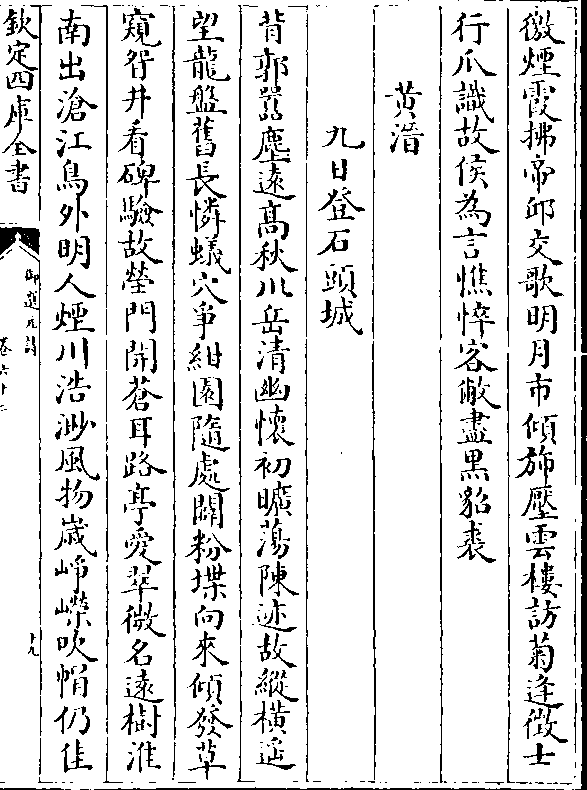 徼煙霞拂帝邱交歌明月市傾旆壓雲樓訪菊逢徴士
行爪識故侯為言憔悴客敝盡黒貂裘
黄溍
九日登石頭城
背郭囂塵遠髙秋川岳清幽懐初曠蕩陳迹故縱横遥
望龍盤舊長憐蟻穴爭紺園隨處闢粉堞向來傾發草
窺眢井看碑驗故塋門開蒼耳路亭愛翠微名遠樹淮
南出滄江鳥外明人煙川浩渺風物嵗崢嶸吹帽仍佳
欽定四庫全書
御選元詩
卷六十二
十九